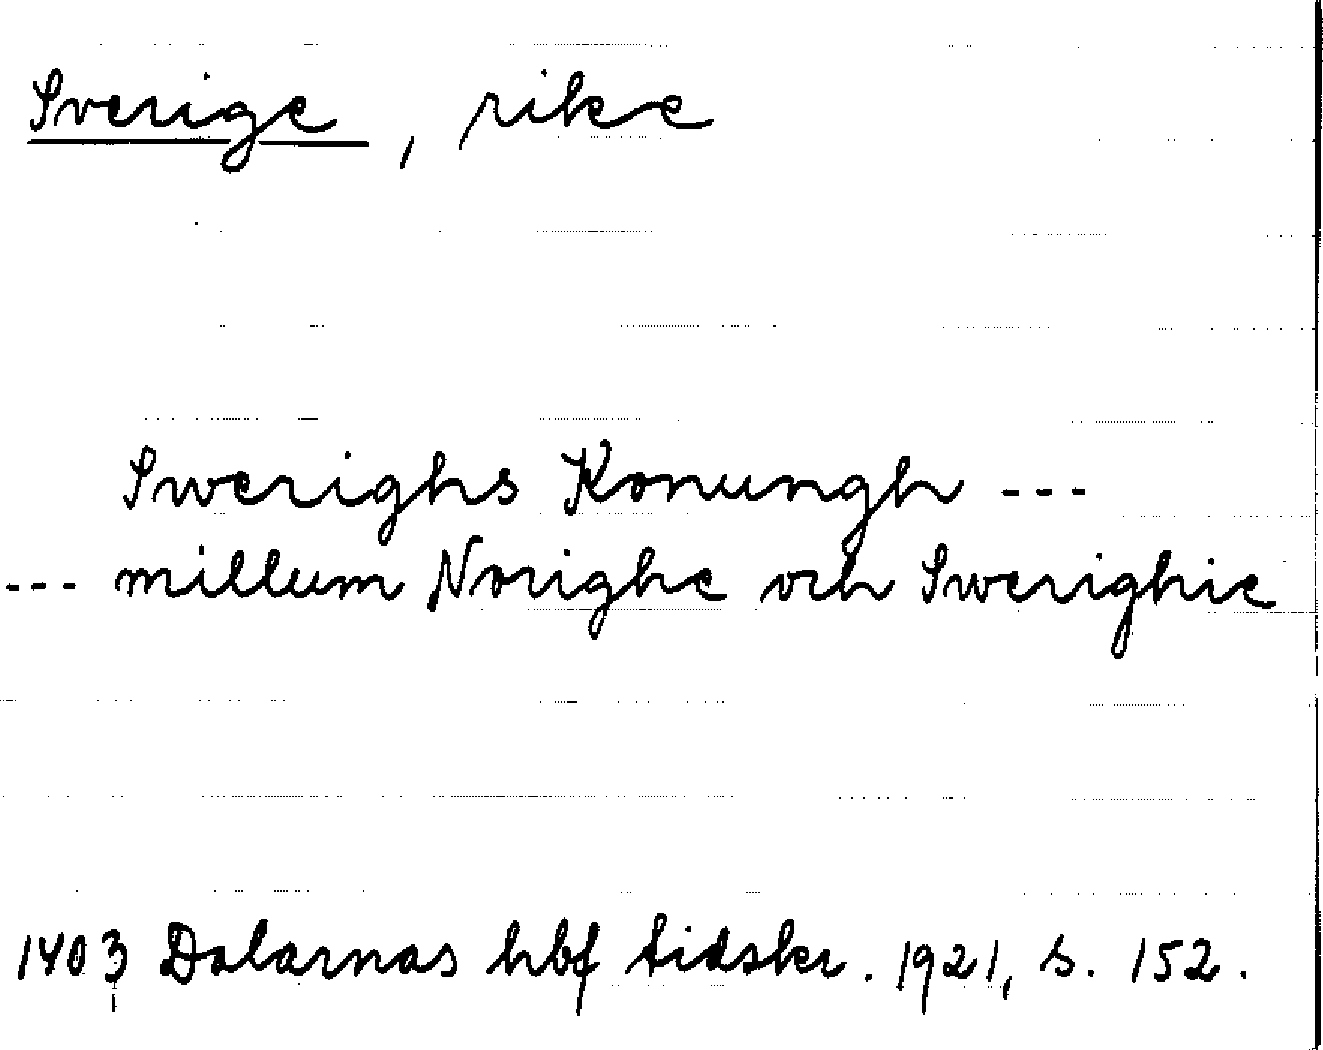 Sverige, rike
Swerighs Konungh ---
--- millum Norighe och Swerighie
1403 Dalarnas hbf tidskr. 1921, s. 152.